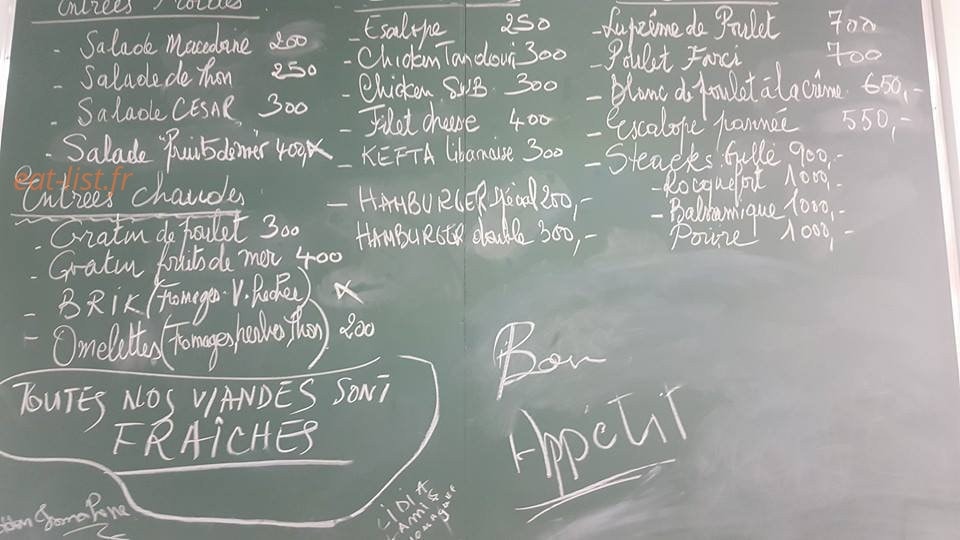 Entrées Froides
- Salade Macedoine 200
- Salade de Thon 250
- Salade CESAR 300
- Salade "fruits de mer" 400,-
eat-list.fr
Entrées Chaudes
- Gratin de Poulet 300
- Gratin fruits de mer 400
- BRIK (Fromages - V. Hachée)
- Omelettes (Fromages, herbes, Thon) 200
TOUTES NOS VIANDES SONT
FRAICHES
- Escalope 250
- Chicken Tandouri 300
- Chicken SUB 300
- Filet cheese 400
- KEFTA libanaise 300
- HAMBURGER spécial 200,-
HAMBURGER double 300,-
- Suprême de Poulet 700
- Poulet Farci 700
- Blanc de poulet à la crême 650,-
- Escalope pannée 550,-
- Steacks Grillé 900,-
- Rocquefort 1000,-
- Balsamique 1000,-
Poivre 1000,-
Bon
Appétit
LIDIA